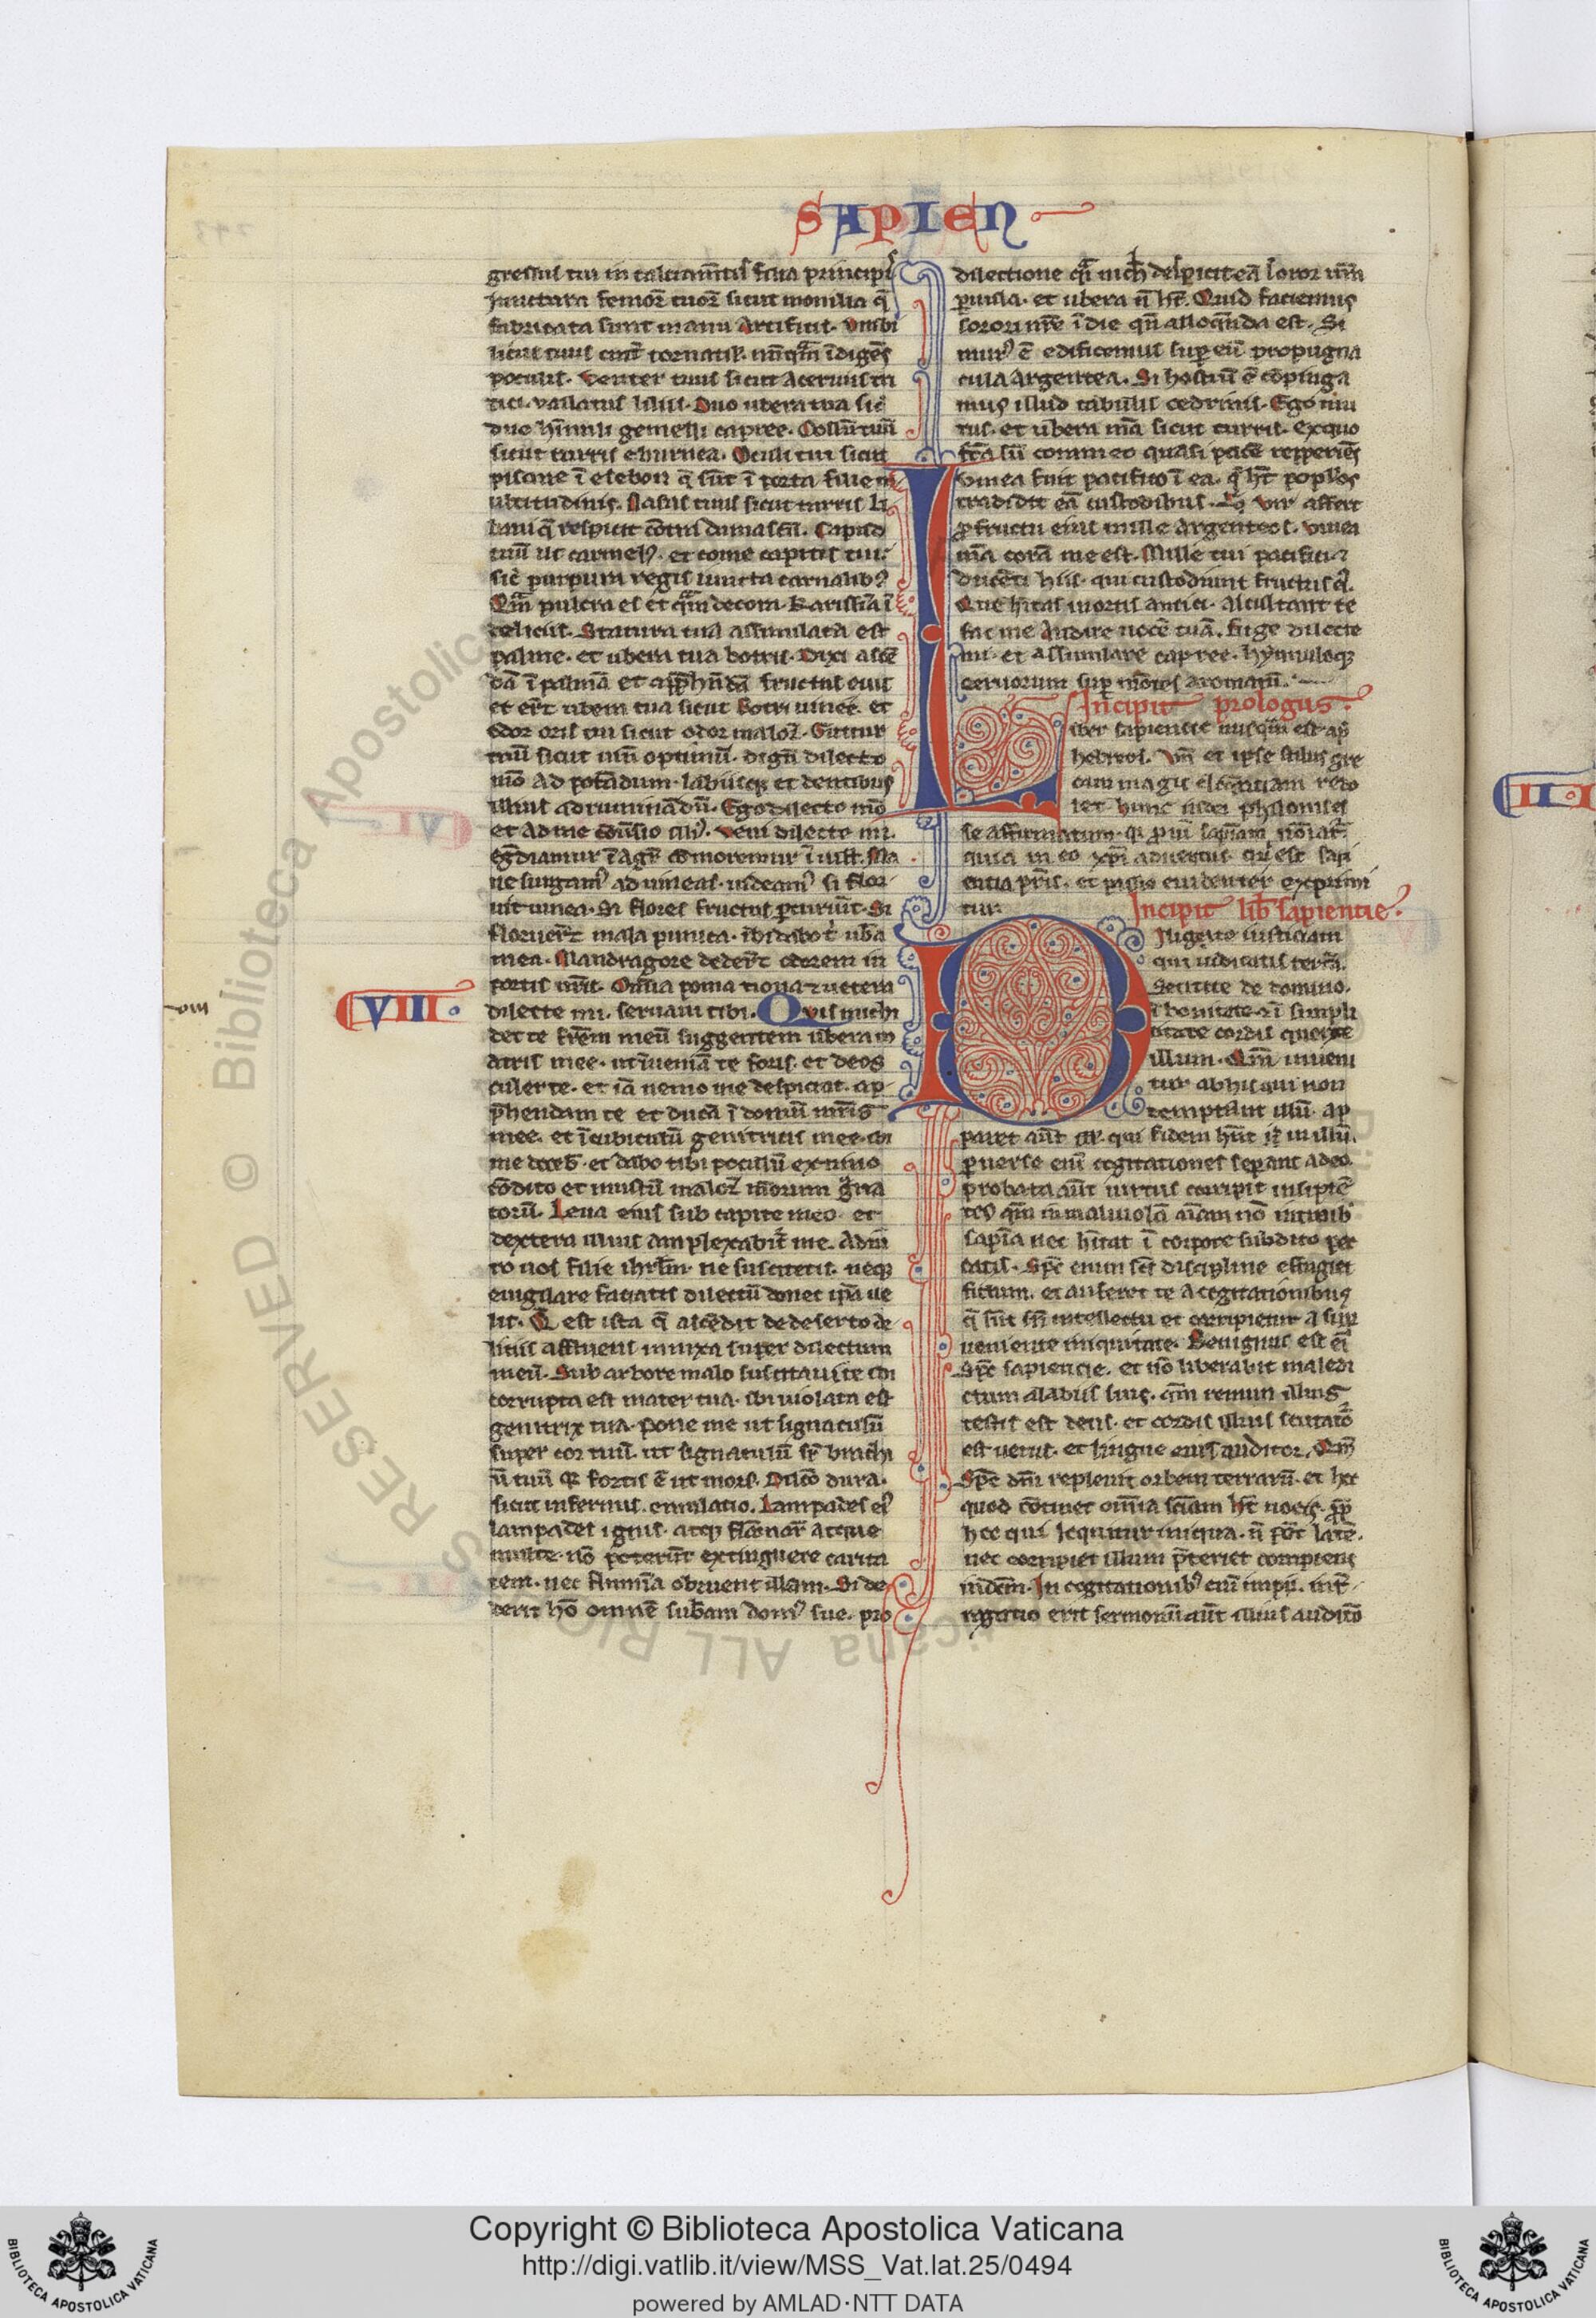 SAPIEN
gressus tui in calciam̅tis filia principis
Iunctura femoꝝ tuoꝝ sicut monilia q̅
fabricata sunt manu Artificis. Vmbi
licus tuus crat̾ tornatil'. nu̅q̅m i̅dige̅s
poculis. Venter tuus sicut Aceruus tri
tici. vallatus liliis. Duo ubera tua sic̾
duo hi̅nuli gemelli capree. Collu̅ tuu̅
sicut turris eburnea. Oculi tui sicut
piscine i̅ esebon q̅ su̅t i̅ porta filie m
ultitudinis. Nasus tuus sicut turris li
bani q̅ respicit co̅tra damascu̅. Caput
tuu̅ ut carmel'. et come capitis tui.
sic̾ purpura regis iuncta canalib'.
Qm̅ pulcra es et q̅m decora. karissi̅a i̅
deliciis. Statura tua assimilata est
palme. et ubera tua botris. Dixi asce̅
da̅ i̅ palma̅ et app̅he̅da̅ fructus eius
et er̅t ubera tua sicut botri uinee. et
odor oris tui sicut odor maloꝝ. Guttur
tuu̅ sicut uinu̅ optimu̅. dignu̅ dilecto
m̅o ad pota̅dum. labiisq; et dentibus
illius ad rumina̅du̅. Ego dilecto m̅o
et ad me co̅uersio ei'. Veni dilecte mi.
eg̅diamur i̅ Agr̅. co̅moremur i̅ uill'. Ma
ne surgam' ad uineas. uideam' si flor
uit uinea. Si flores fructus ꝑturiu̅t. Si
floruer̅t mala punica. ibi dabo t̾ ub̅a
mea. Mandragore deder̅t odorem in
portis nr̅is. Om̅ia poma noua ⁊ uetera
VIII.
dilecte mi. seruaui tibi. Quis michi
det te fr̅em meu̅ suggentem ubera m
atris mee. ut i̅uenia̅ te foris. et deos
culer te. et ia̅ nemo me despiciat. ap
p̅hendam te et duca̅ i̅ domu̅ mr̅is
mee. et i̅ cubiculu̅ genitricis mee. ibi
me doceb̾. et dabo tibi poculu̅ ex uino
co̅dito et mustu̅ maloꝝ m̅orum g̾na
toru̅. Leua eius sub capite meo. et
dextera illius amplexabit̾ me. Adiu
ro uos filie ihrl̅m. ne suscitetis. neq;
euigilare faciatis dilectu̅ donec ip̅a ue
lit. Q̅ est ista q̅ asce̅dit de deserto de
liciis affluens innixa super dilectum
meu̅. Sub arbore malo suscitaui te ibi
corrupta est mater tua. ibi uiolata est
genitrix tua. Pone me ut signaculu̅
super cor tuu̅. ut signaculu̅ sr̅ brachi
u̅ tuu̅ q̅ fortis e̅ ut mors. Dilc̅o dura.
sicut infernus. emulatio. Lampades ei'
lampades ignis. atq; fla̅maꝝ Aceque
multe. no̅ poteru̅t extinguere carita
tem. nec flumi̅a obruent illam. Si de
derit ho̅ omne̅ sub̅am dom' sue. pro
dilectione q̅i nich̅ despiciet ea̅. Soror nr̅a
paruula. et ubera n̅ h̅t. Quid faciemus
sorori nr̅e i̅ die qn̅ alloq̅nda est. Si
mur' e̅ edificemus suꝑ eu̅ propugna
cula Argentea. Si hostiu̅ e̅ co̅pinga
mus illud tabulis cedrinis. Ego mu
rus. et ubera m̅a sicut turris. Ex quo
fc̅a su̅ coram eo quasi pace̅ reꝑiens
Vinea fuit pacifico i̅ ea. q̅ h̅t pop̅los
tradidit ea̅ custodibus. Vir affert
ꝓ fructu eius mille Argenteos. Vinea
m̅a cora̅ me est. Mille tui pacifici. ⁊
duce̅ti hiis. qui custodiunt fructus ei'.
Que h̅itas i̅ ortis amici. Ascultant te
fac me Audire uoce̅ tua̅. Fuge dilecte
mi. et Assimilare capree. hynnuloq;
ceruorum suꝑ mo̅tes aromatu̅.
Incipit prologus.
Liber sapiencie nusq̅m est ap̅
hebreos. Vn̅ et ipse stilus gre
cam magis eloq̅ntiam redo
let. hunc iudei philonis es
se affirmantur. q̅ ꝓin̅ sapia̅m no̅iat̾.
quia in eo xp̅i aduentus. qui est sapi
entia pr̅is. et passio euidenter exprimi
tur. Incipit lib̅ sapiencie.
Diligite iusticiam
qui iudicatis terra̅.
Sentite de domino.
i̅ bonitate. ⁊ i̅ simpli
citate cordis querite
illum. Qm̅ inueni
tur ab hiis qui non
temptant illu̅. ap
paret aut̅ eis. qui fidem h̅nt i̅ illu̅.
ꝑuerse eni̅ cogitationes seꝑant a deo.
probata aut̅ uirtus corripit insipie̅
tes. qm̅ in maliuola̅ ai̅am no̅ introib̾
sapi̅a nec h̅itat i̅ corpore subdito pec
catis. Sp̅c enim sc̅s discipline effugiet
fictum. et auferet se a cogitationibus
q̅ su̅t sn̅ intellectu et corripietur a suꝑ
ueniente iniquitate. Benignus est ei̅
sp̅c sapiencie. et no̅ liberabit maledi
ctum a labiis suis. q̅m renum illius
testis est deus. et cordis illius scutato̅
est uerus. et lingue eius auditor. Qm̅
sp̅c dn̅i repleuit orbem terraru̅. et hoc
quod co̅tinet omi̅a scia̅m h̅t uocis. ꝓp̅
hoc qui loquitur iniqua. n̅ pot̅ late̅.
nec corripiet illum p̅teriet corripiens
iudiciu̅m. In cogitationib' eni̅ impii. int̅r
rogatio erit sermonu̅ aut̅ illius auditio
Copyright © Biblioteca Apostolica Vaticana
http://digi.vatlib.it/view/MSS_Vat.lat.25/0494
powered by AMLAD·NTT DATA
BIBLIOTECA APOSTOLICA VATICANA
BIBLIOTECA APOSTOLICA VATICANA